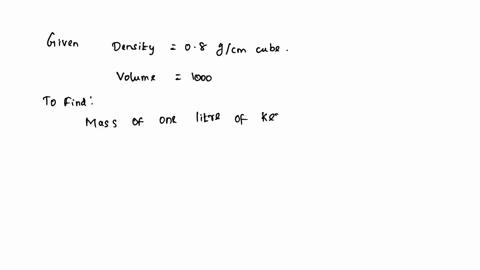 Given Density = 0.8 g/cm cube.
Volume = 1000
To Find:
Mass of one litre of ke